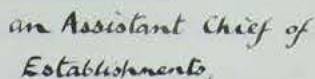 an Assistant Chief of
Establishments,